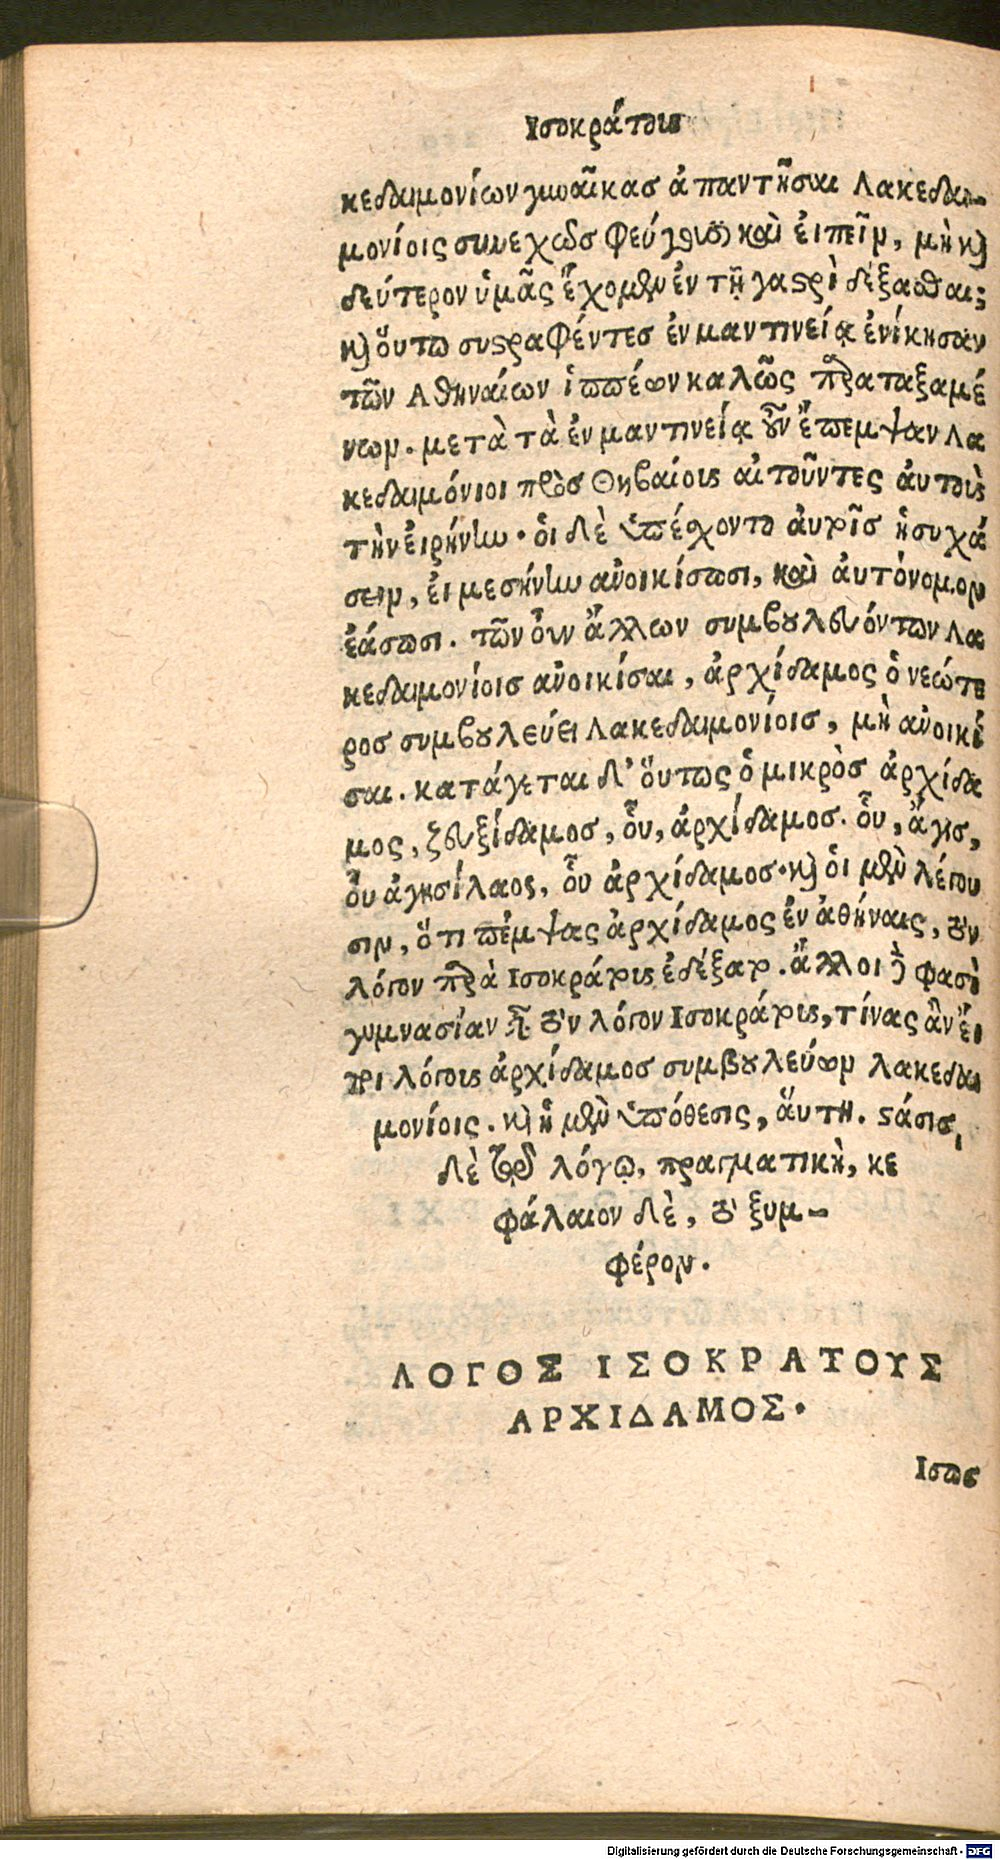 Ισοκράτους
κεδαιμονίων γυναῖκας ἀπαντῆσαι Λακεδαι-
μονίοις συνεχῶς φεύγουσι καὶ ἐιπεῖν, μὴ καὶ
δεύτερον ὑμᾶς ἔχομεν ἐν τῇ γαστρὶ δέξασθαι;
καὶ ὅυτω συστραφέντες ἐν μαντινείᾳ ἐνίκησαν
τῶν Αθηναίων ἱππέων καλῶς παραταξαμέ
νων. μετὰ τὰ ἐν μαντινείᾳ οὖν ἔπεμψαν Λα
κεδαιμόνιοι πρὸς Θηβαίους αἰτοῦντες ἀυτοὺς
τὴν ἐιρήνην. ὁι δὲ ὑπέσχοντο ἀυτοῖς ἡσυχά
σειν, ἐι μεσήνην ἀνοικίσωσι, καὶ ἀυτόνομον
ἐάσωσι. τῶν ὀυν ἄλλων συμβουλευόντων Λα
κεδαιμονίοις ἀνοικίσαι, ἀρχίδαμος ὁ νεώτε
ρος συμβουλεύει Λακεδαιμονίοις, μὴ ἀνοικί
σαι. κατάγεται δ' ὅυτως ὁ μικρὸς ἀρχίδα
μος, ζευξίδαμος, ὗ, ἀρχίδαμος. ὗ, ἄγις,
ὗ ἀγησίλαος, ὗ ἀρχίδαμος. καὶ ὁι μὲν λέγου
σιν, ὅτι πέμψας ἀρχίδαμος ἐν ἀθήναις, τὸν
λόγον παρὰ Ισοκράτους ἐδέξατο. ἄλλοι δὲ φασὶ
γυμνασίαν εἶναι τὸν λόγον Ισοκράτους, τίνας ἂν ἔι
ποι λόγους ἀρχίδαμος συμβουλεύων λακεδαι
μονίοις. καὶ ἡ μὲν ὑπόθεσις, ἅυτη. στάσις,
δὲ τοῦ λόγου, πραγματικὴ, κε
φάλαιον δὲ, τὸ ξυμ-
φέρον.
ΛΟΓΟΣ ΙΣΟΚΡΑΤΟΥΣ
ΑΡΧΙΔΑΜΟΣ.
Ισως
Digitalisierung gefördert durch die Deutsche Forschungsgemeinschaft - DFG